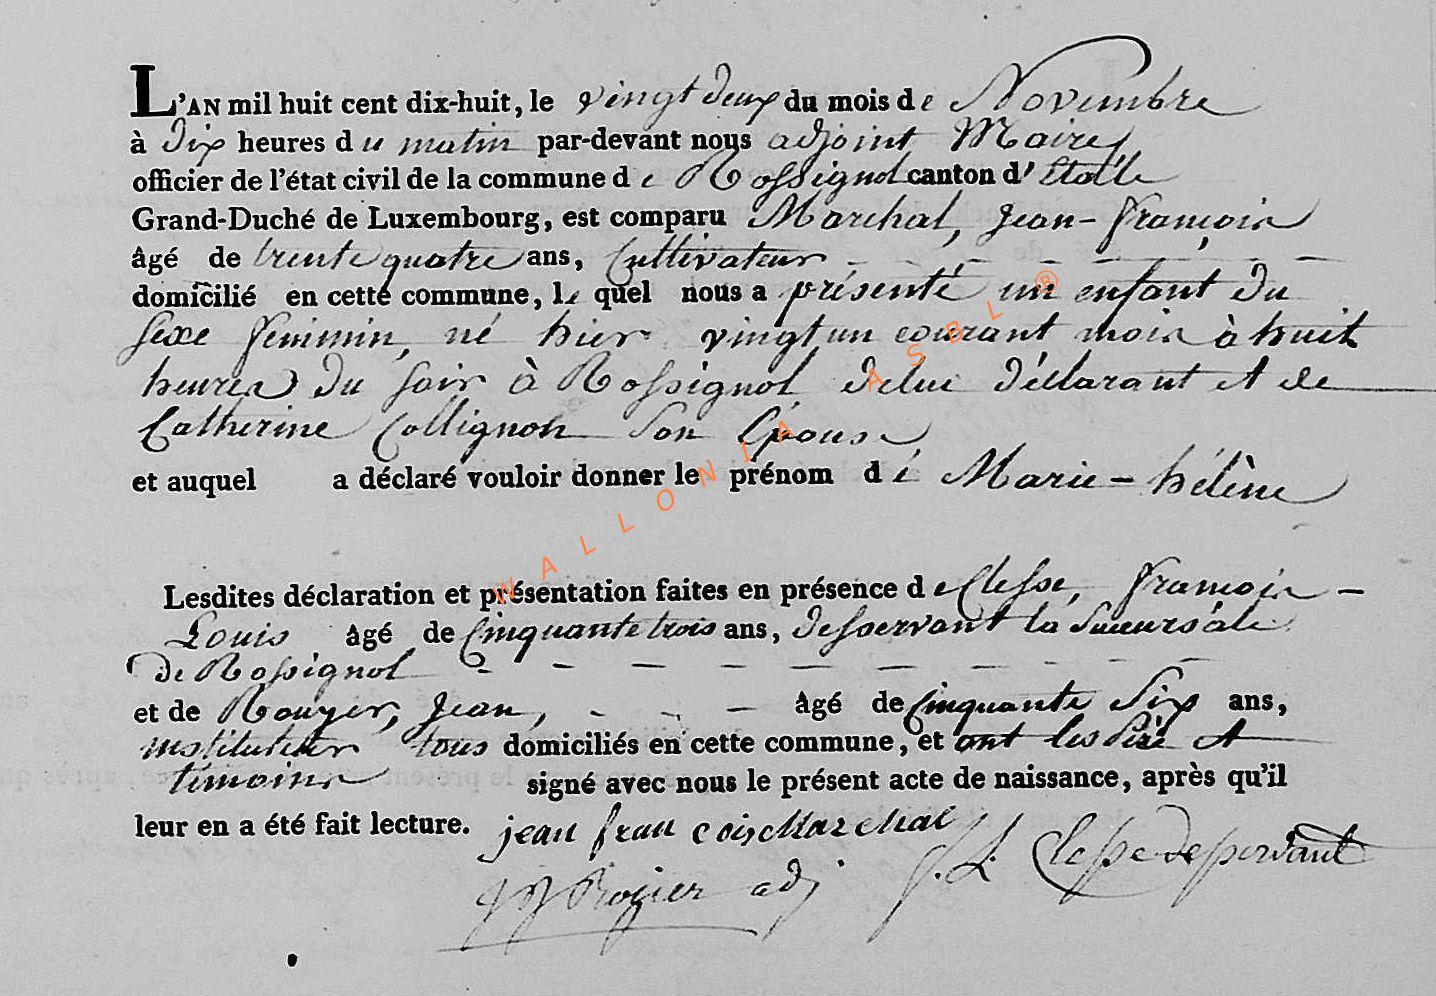 L'AN mil huit cent dix-huit, le vingt deux du mois de Novembre
à dix heures du matin par-devant nous adjoint Maire,
officier de l'état civil de la commune de Rossignol canton d'Etalle
Grand-Duché de Luxembourg, est comparu Marchal, Jean-françois
âgé de trente quatre ans, Cultivateur - - - - - -
domicilié en cette commune, le quel nous a présenté un enfant du
sexe féminin, né hier vingt un courant mois à huit
heures du soir à Rossignol, de lui déclarant et de
Catherine Collignon son Epouse
et auquel a déclaré vouloir donner le prénom de Marie-hélène
Lesdites déclaration et présentation faites en présence de Clesse, françois-
Louis âgé de Cinquante trois ans, desservant la succursale
de Rossignol - - - - - - - - -
et de Rouyer, Jean, - - - âgé de Cinquante six ans,
instituteur tous domiciliés en cette commune, et ont les Père et
témoins signé avec nous le présent acte de naissance, après qu'il
leur en a été fait lecture. jean francois Marchal
Rogier adj f. L. Clesse desservant
WALLONIA ASBL ®